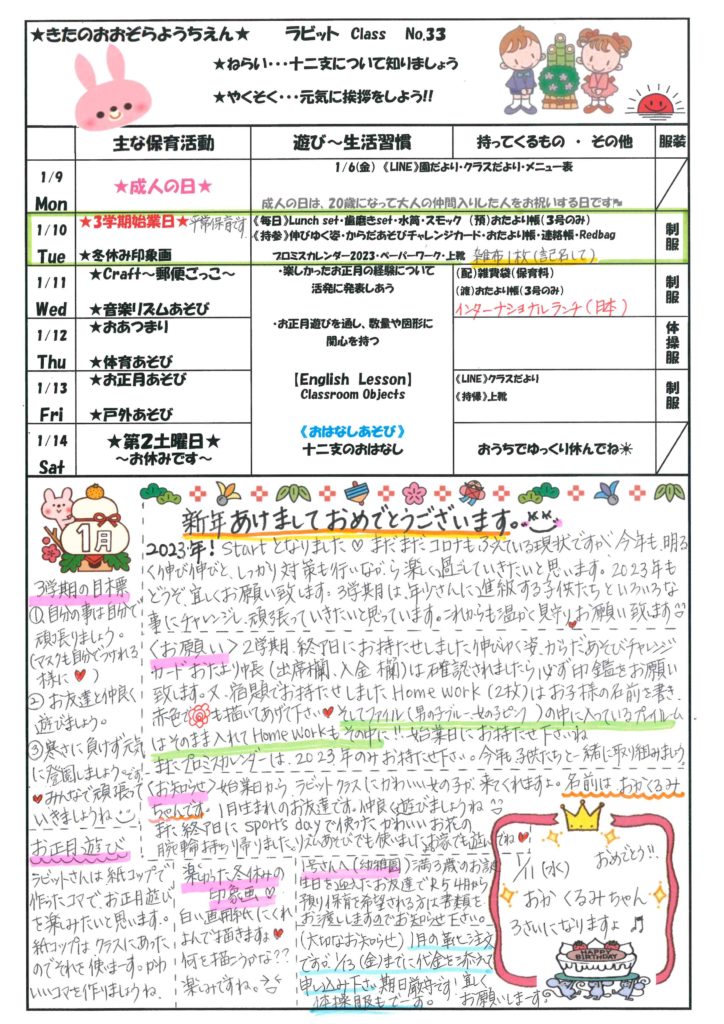 ★きたのおおぞらようちえん★　ラビット Class No.33
★ねらい・・・十二支について知りましょう
★やくそく・・・元気に挨拶をしよう!!
主な保育活動　遊び～生活習慣　持ってくるもの ・ その他　服装
1/9
Mon
★成人の日★
1/6(金) 《LINE》園だより・クラスだより・メニュー表
成人の日は、20歳になって大人の仲間入りした人をお祝いする日です
1/10
Tue
★3学期始業日★平常保育です
★冬休み印象画
《毎日》Lunch set・歯磨きset・水筒・スモック (預)おたより帳(3号のみ)
《持参》伸びゆく姿・からだあそびチャレンジカード・おたより帳・連絡帳・Redbag
プロミスカレンダー2023・ペーパーワーク・上靴 雑布1枚(記名して)
制服
1/11
Wed
★Craft～郵便ごっこ～
★音楽リズムあそび
・楽しかったお正月の経験について
活発に発表しあう
(配)雑費袋(保育料)
(渡)おたより帳(3号のみ)
インターナショナルランチ(日本)
制服
1/12
Thu
★おあつまり
★体育あそび
・お正月遊びを通し、数量や図形に
関心を持つ
体操服
1/13
Fri
★お正月あそび
★戸外あそび
【English Lesson】
Classroom Objects
《LINE》クラスだより
《持帰》上靴
制服
1/14
Sat
★第2土曜日★
～お休みです～
《おはなしあそび》
十二支のおはなし
おうちでゆっくり休んでね☀
1月
新年あけましておめでとうございます。
2023年! Startとなりました♡ まだまだコロナもふえている現状ですが、今年も、明る
く伸び伸びと、しっかり対策も行いながら楽しく過していきたいと思います。2023年も
どうぞ、宜しくお願い致します。3学期は、年少さんに進級する子供たちといろいろな
事にチャレンジし、頑張っていきたいと思っています。これからも温かく見守りお願い致します
3学期の目標
①自分の事は自分で
頑張りましょう。
(マスクも自分でつけれる
様に♥)
②お友達と仲良く
遊びましょう。
③寒さに負けず元気
に登園しましょう です
♥みんなで頑張って
いきましょうね
〈お願い〉2学期、終了日にお持たせしました伸びゆく姿、からだあそびチャレンジ
カード、おたより帳(出席欄、入金欄)は確認されましたら必ず印鑑をお願い
致します。又、宿題でお持たせしましたHome Work(2枚)はお子様の名前を書き、
赤色で も描いてあげて下さい♥そしてファイル(男の子ブルー、女の子ピンク)の中に入っているプレイルーム
はそのまま入れてHome Workもその中に!!始業日にお持たせ下さいね
またプロミスカレンダーは、2023年のみお持たせ下さい。今年も子供たちと一緒に取り組みましょう
〈お知らせ〉始業日から、ラビットクラスにかわいい女の子が、来てくれますよ。名前は、おかくるみ
ちゃんです。1月生まれのお友達です。仲良く遊びましょうね
また終了日にsports dayで使ったかわいいお花の
腕輪お持ち帰りました。リズムあそびでも使いました。お家でも遊んでね♥
お正月遊び
ラビットさんは紙コップで
作ったコマで、お正月遊び
を楽しみたいと思います。
紙コップはクラスにあった
のでそれを使います。かわ
いいコマを作りましょうね。
楽しかった冬休みの
印象画♡
白い画用紙にくれ
よんで描きますよ♥
何を描こうかな??
楽しみですね。
1号さんへ(幼稚園)満3歳のお誕
生日を迎えたお友達でR5.4月から
預り保育を希望される方は書類を
お渡ししますのでお知らせ下さい。
(大切なお知らせ)1月の単ヒ注文
です。1/13(金)までに代金を添えて
申し込み下さい。期日厳守です!宜しく
体操服もでーす。お願いしまーす。
1/11(水) おめでとう!!
おか くるみちゃん
3さいになりますよ♬
HAPPY
BIRTHDAY